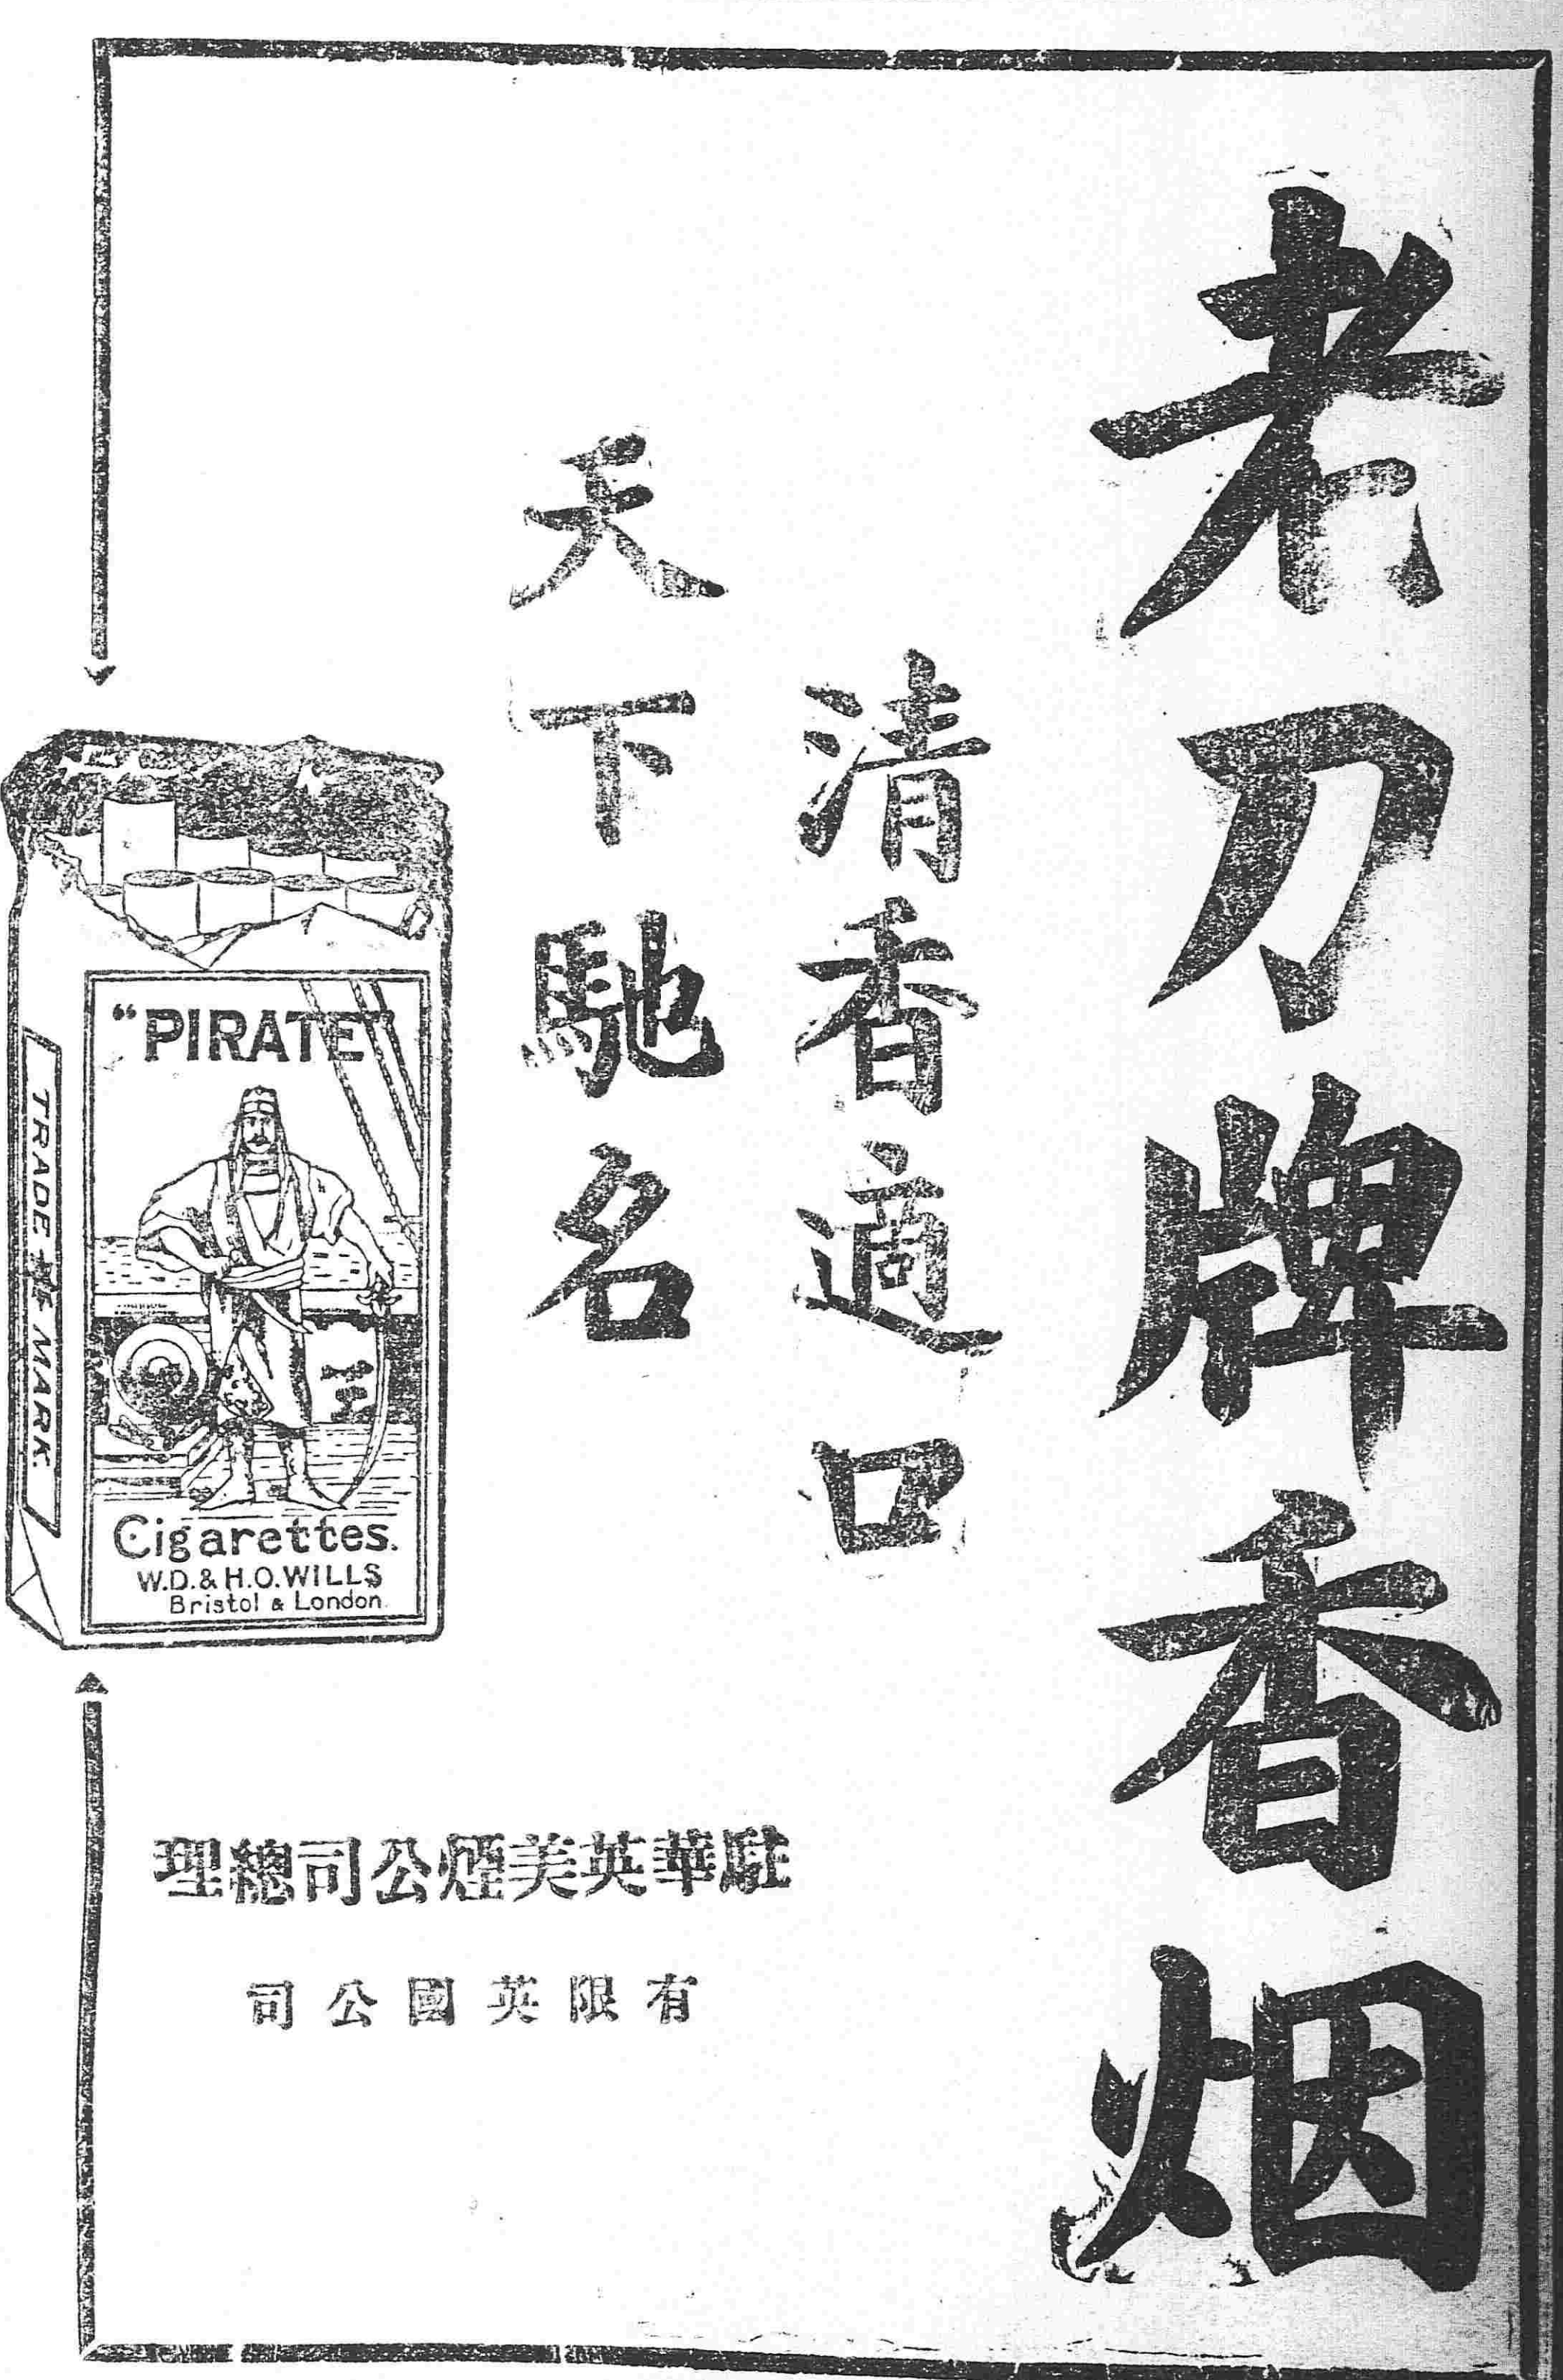 老刀牌香烟
清香適口
天下馳名
"PIRATE"
TRADE MARK
Cigarettes.
W.D. & H.O. WILLS
Bristol & London.
駐華英美煙公司總理
有限英國公司